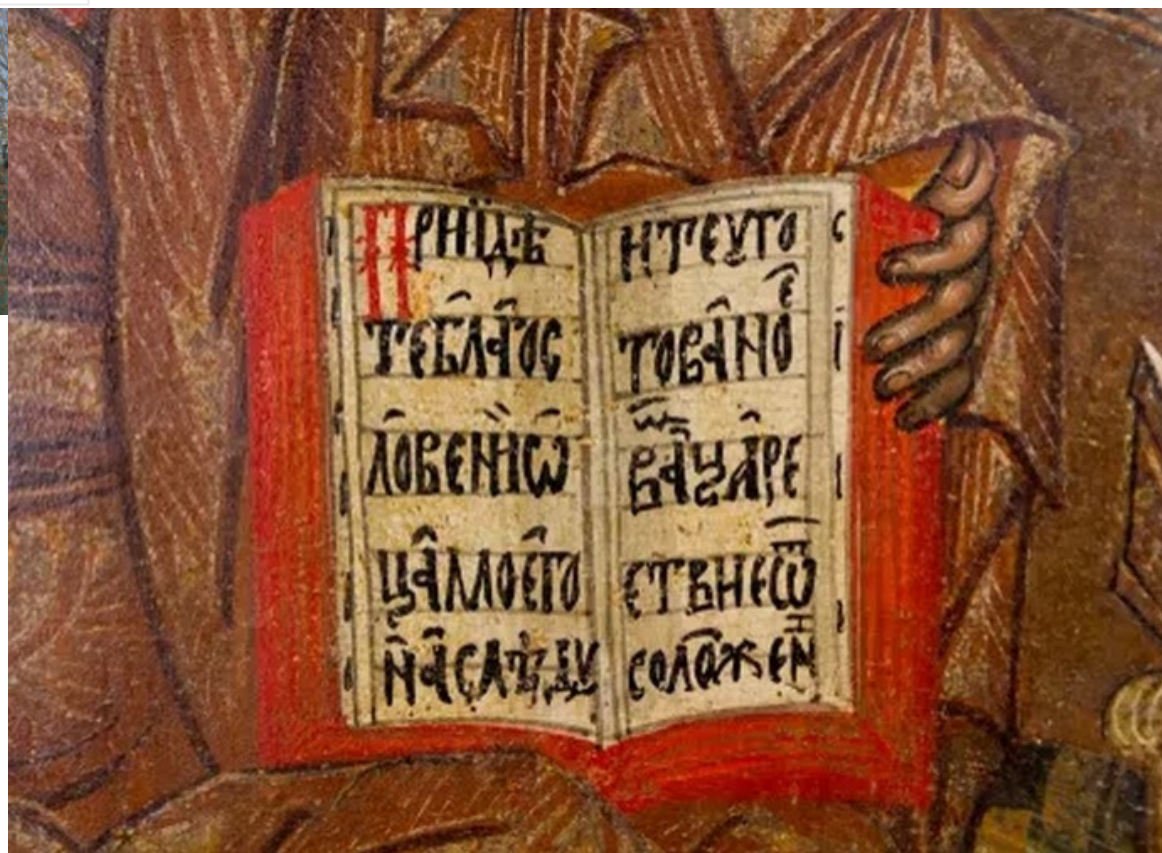 ПРИЇДѢ
ТЕБЛА̂ГОС
ЛО̂ВЕНІѠ
ЦА̂МОЕ̂ГО
НАСЛѢДУ
ИТЕУГО
ТОВА̂НОЕ
ВАМЦА̂РЕ
СТВНЕѾ
СОЛОЖЕНИ